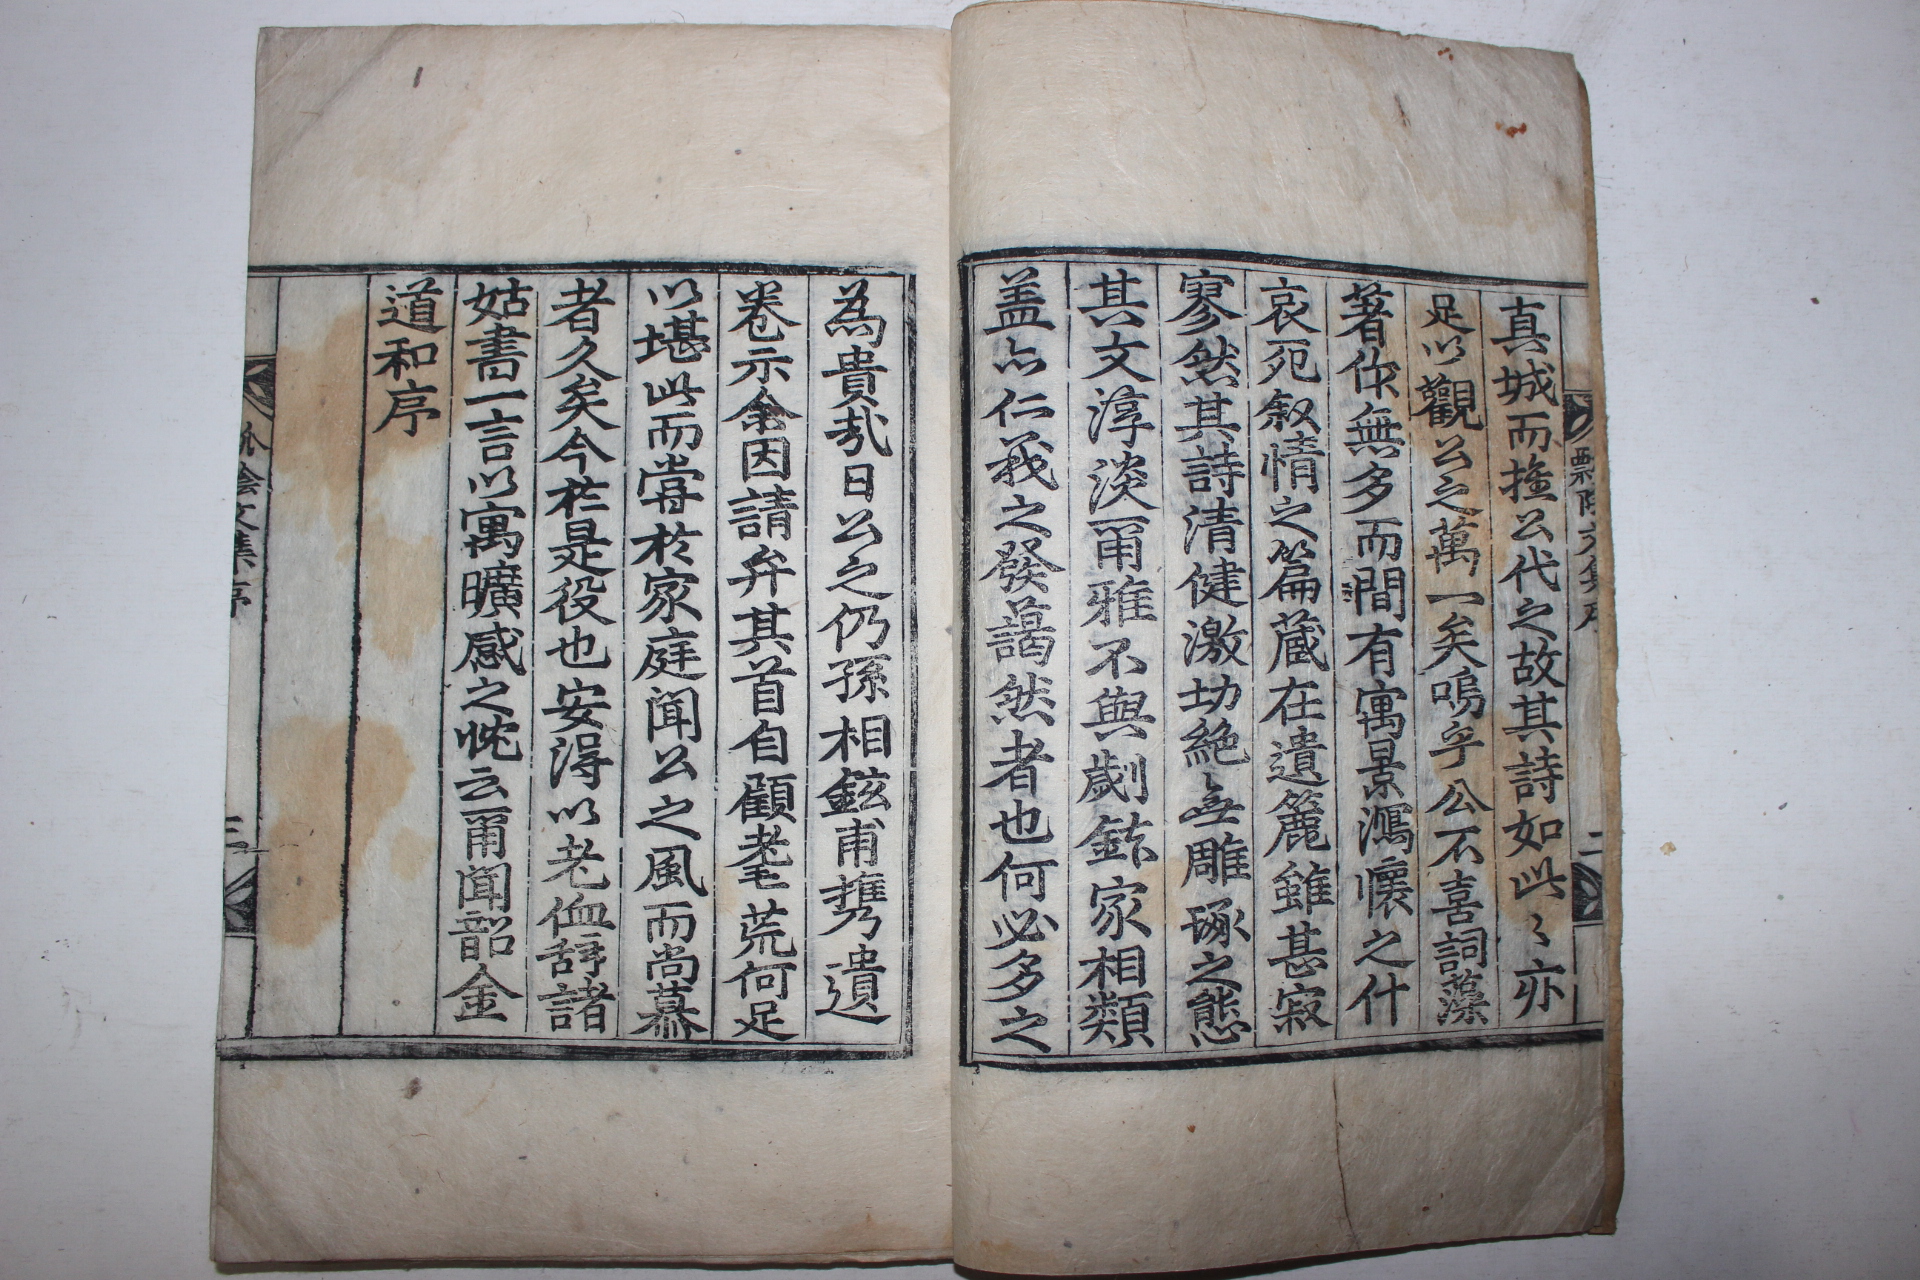 瓢隱文集序
二
真城而撼公代之故其詩如此々亦
足以觀公之萬一矣嗚乎公不喜詞藻
著作無多而間有寓景瀉懷之什
哀死叙情之篇蔵在遺簏雖甚寂
寥然其詩清健激切絶無雕琢之態
其文淳淡爾雅不與劌鉥家相類
盖亦仁義之發藹然者也何必多之
為貴哉日公之仍孫相鉉甫携遺
卷示余因請弁其首自顧耄荒何足
以堪此而嘗於家庭聞公之風而尚慕
者久矣今於是役也安得以老洫辞諸
姑書一言以寓曠感之忱云爾聞韶金
道和序
文集序
三